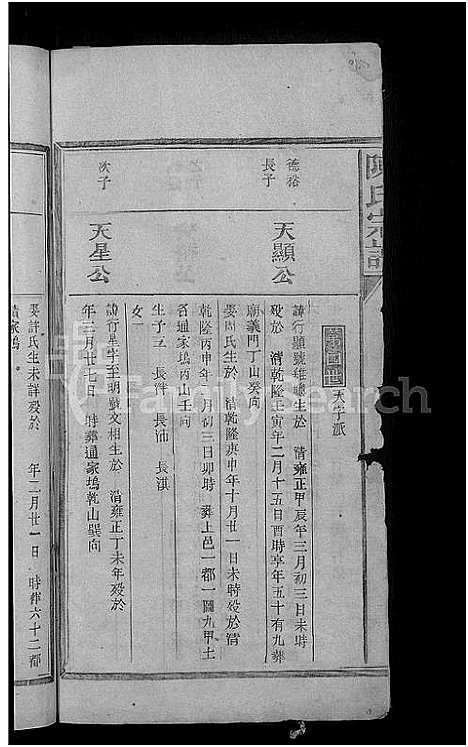 陳氏宗譜
第四世 天字派
德裕
長子
天顯公
諱行顯號 生於 清雍正甲辰年三月初三日未時
殁於 清乾隆壬寅年二月十五日酉時享年五十有九葬
廟義門丁山癸向
娶周氏生於 清乾隆庚申年十月廿一日未時殁於清
乾隆丙申年 月初三日卯時 葬上邑一都一圖九甲土
名通家塢丙山壬向
生子三 長 長沛 長淇
女一
次子
天星公
諱行星字至明號文相生於 清雍正丁未年殁於
年三月廿七日 時葬通家塢乾山巽向
娶許氏生未詳殁於 年二月廿一日 時葬六十二都
家塢
FamilySearch